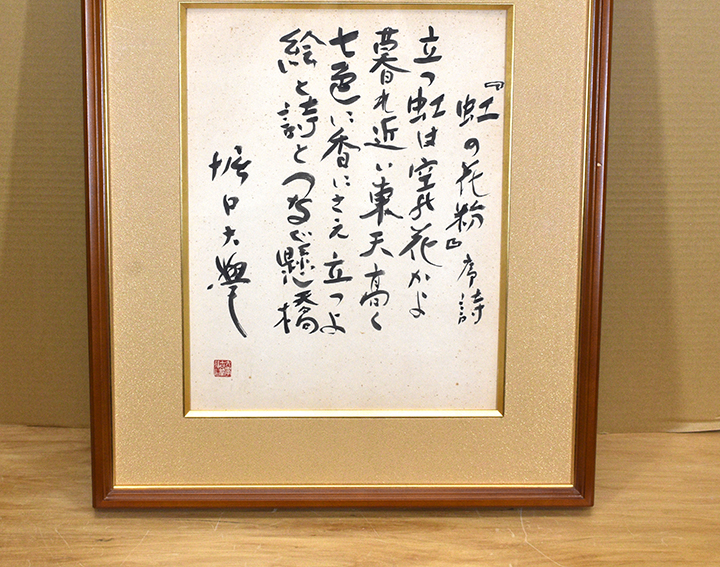 『虹の花粉』序詩
立つ虹は空の花かよ
暮れ近い東天高く
七色に香にさえ立つよ
絵と詩とつなぐ懸橋
堀口大學